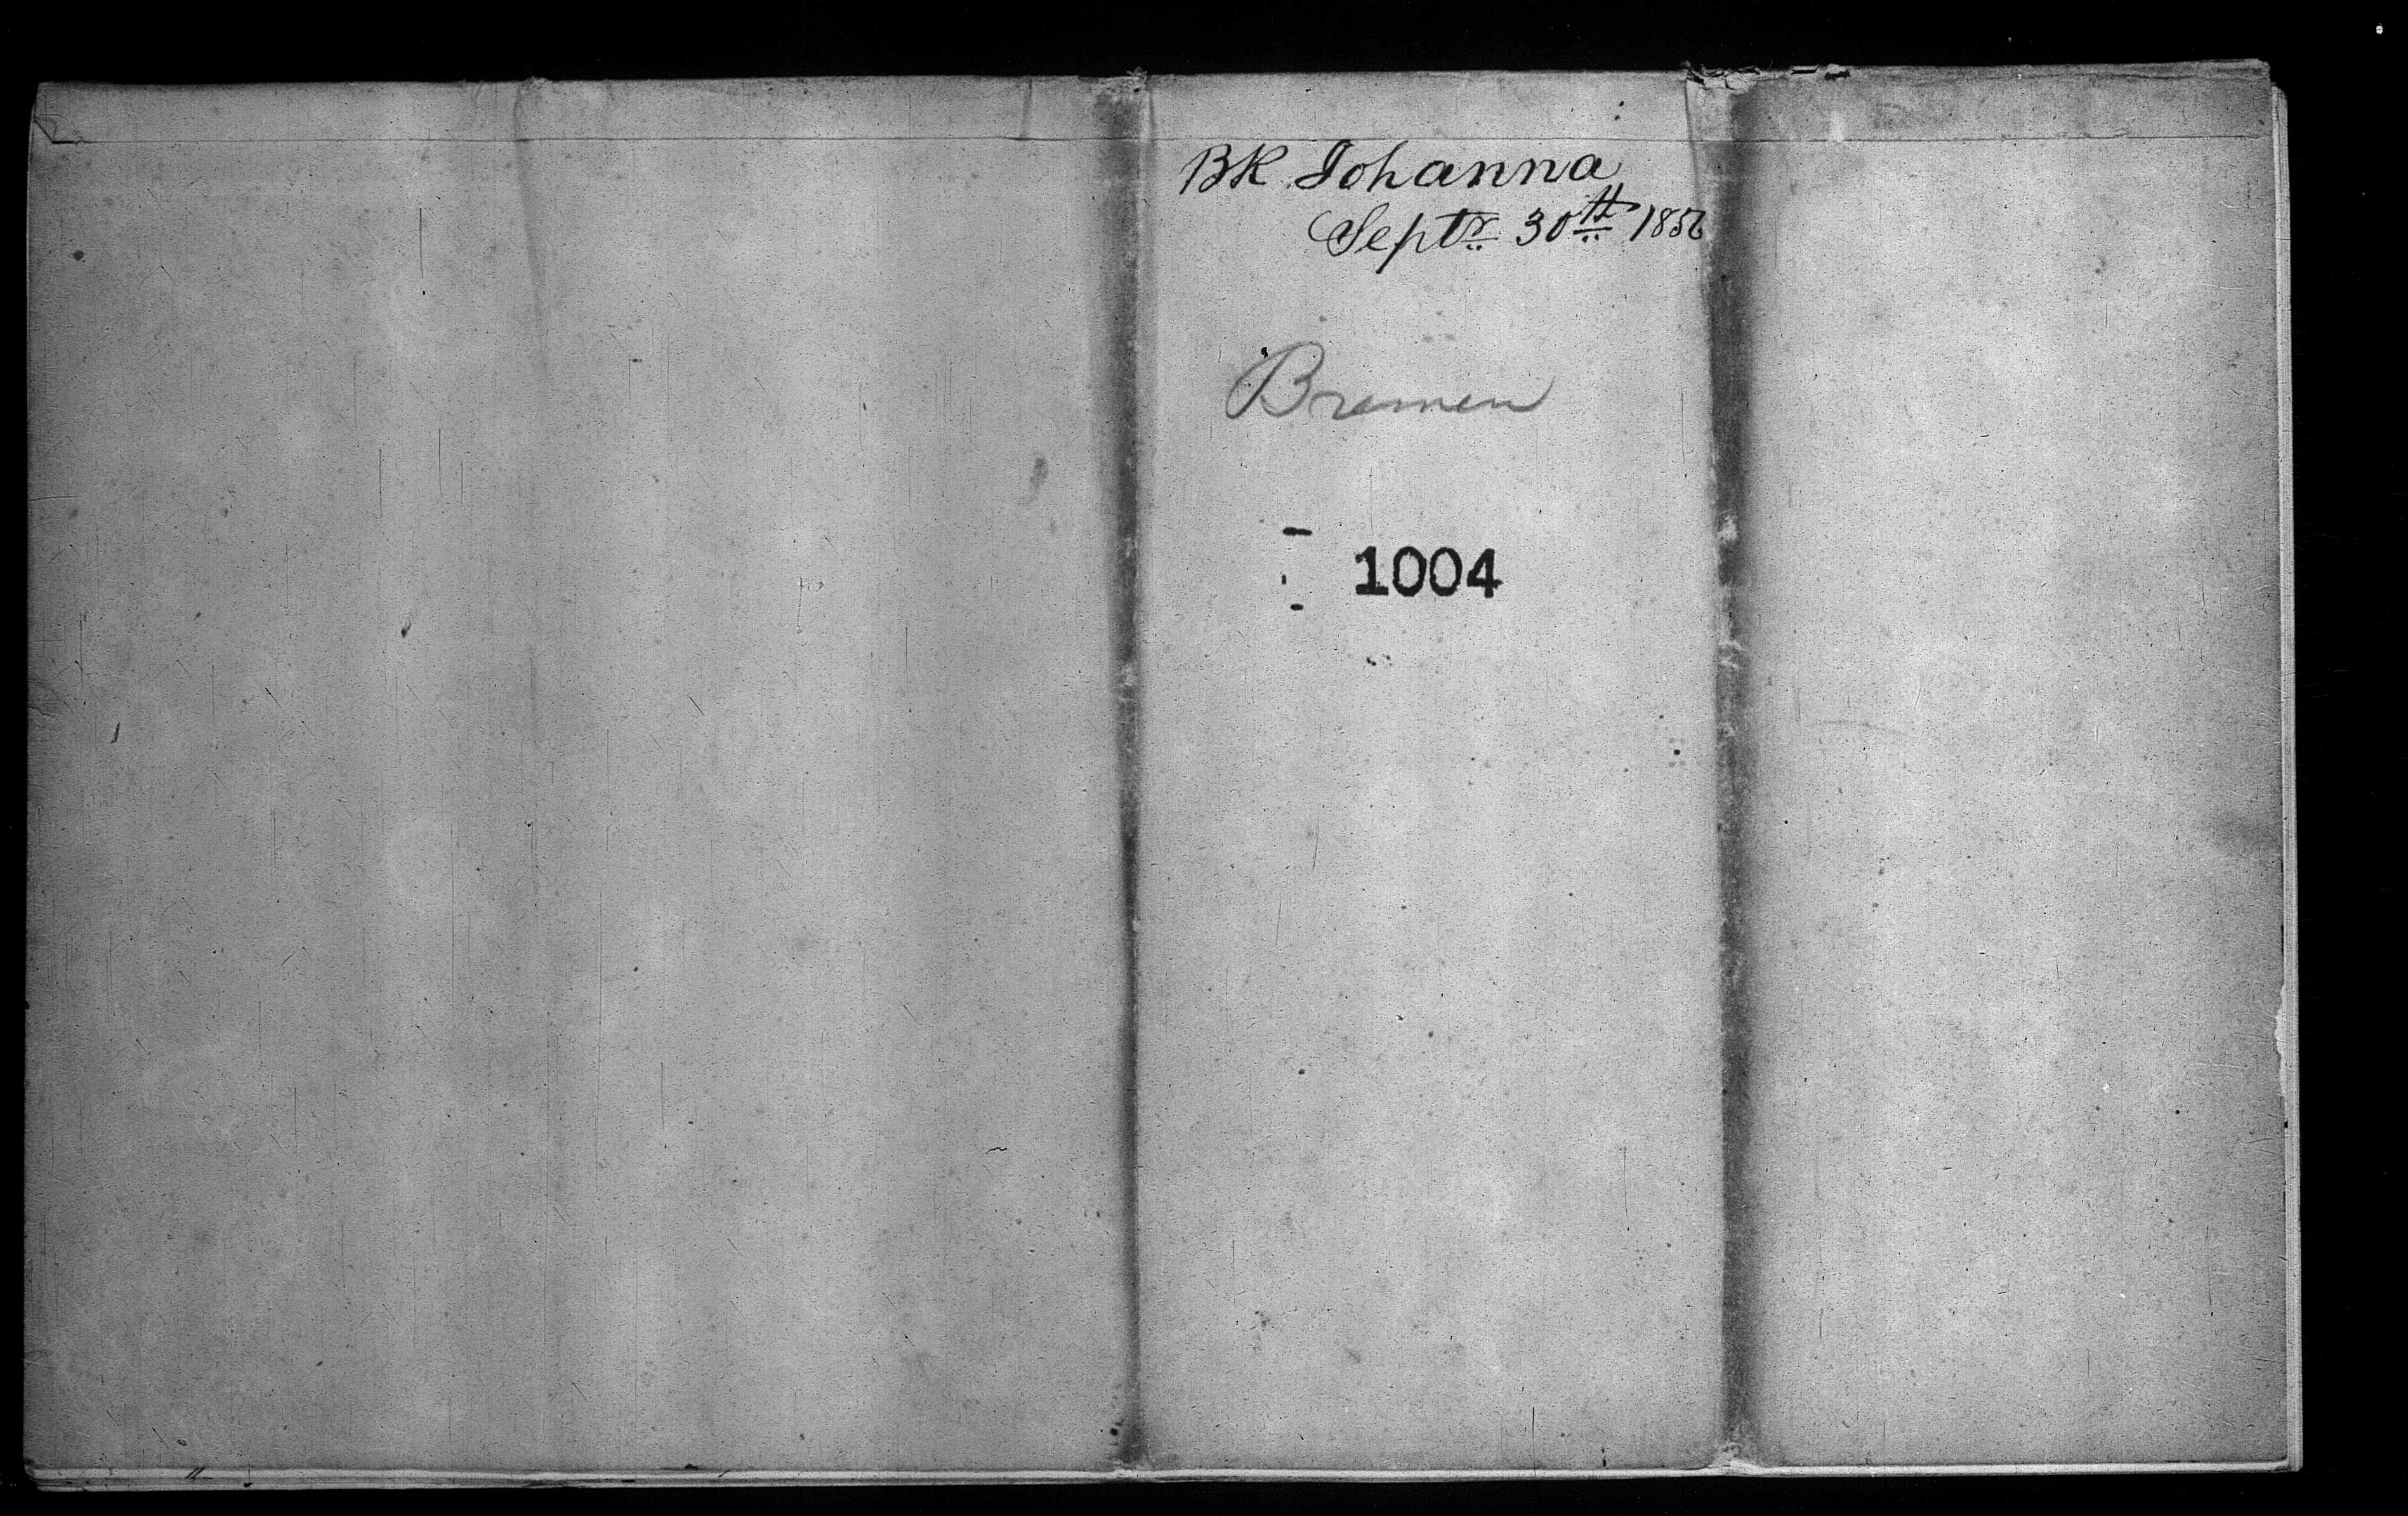 BK Johanna
Septr 30th 1856
Bremen
1004